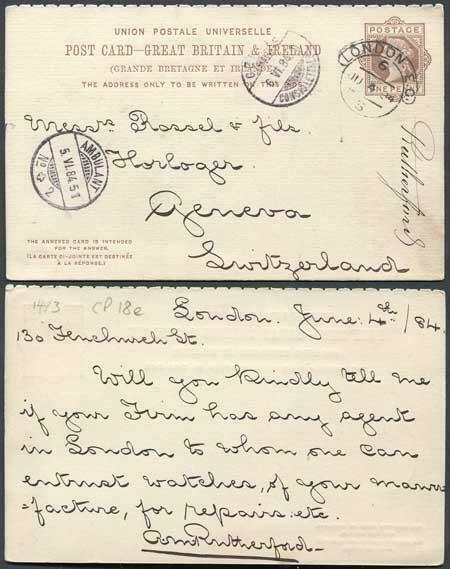 UNION POSTALE UNIVERSELLE
POST CARD—GREAT BRITAIN & IRELAND
(GRANDE BRETAGNE ET IRLANDE)
THE ADDRESS ONLY TO BE WRITTEN ON THIS
POSTAGE
ONE PE
LONDON E.C
6
Messrs Rossel & fils.
Horloger.
Geneva
Switzerland
Rutherford
AMBULANT
5.VI.84.5
No 2
THE ANNEXED CARD IS INTENDED
FOR THE ANSWER.
(LA CARTE CI-JOINTE EST DESTINÉE
À LA RÉPONSE.)
1413 CP 18e
London. June 4th/84.
130 Fenchurch St.
Will you kindly tell me
if your Firm has any agent
in London to whom one can
entrust watches, of your manu-
=facture, for repairs etc.
Rutherford